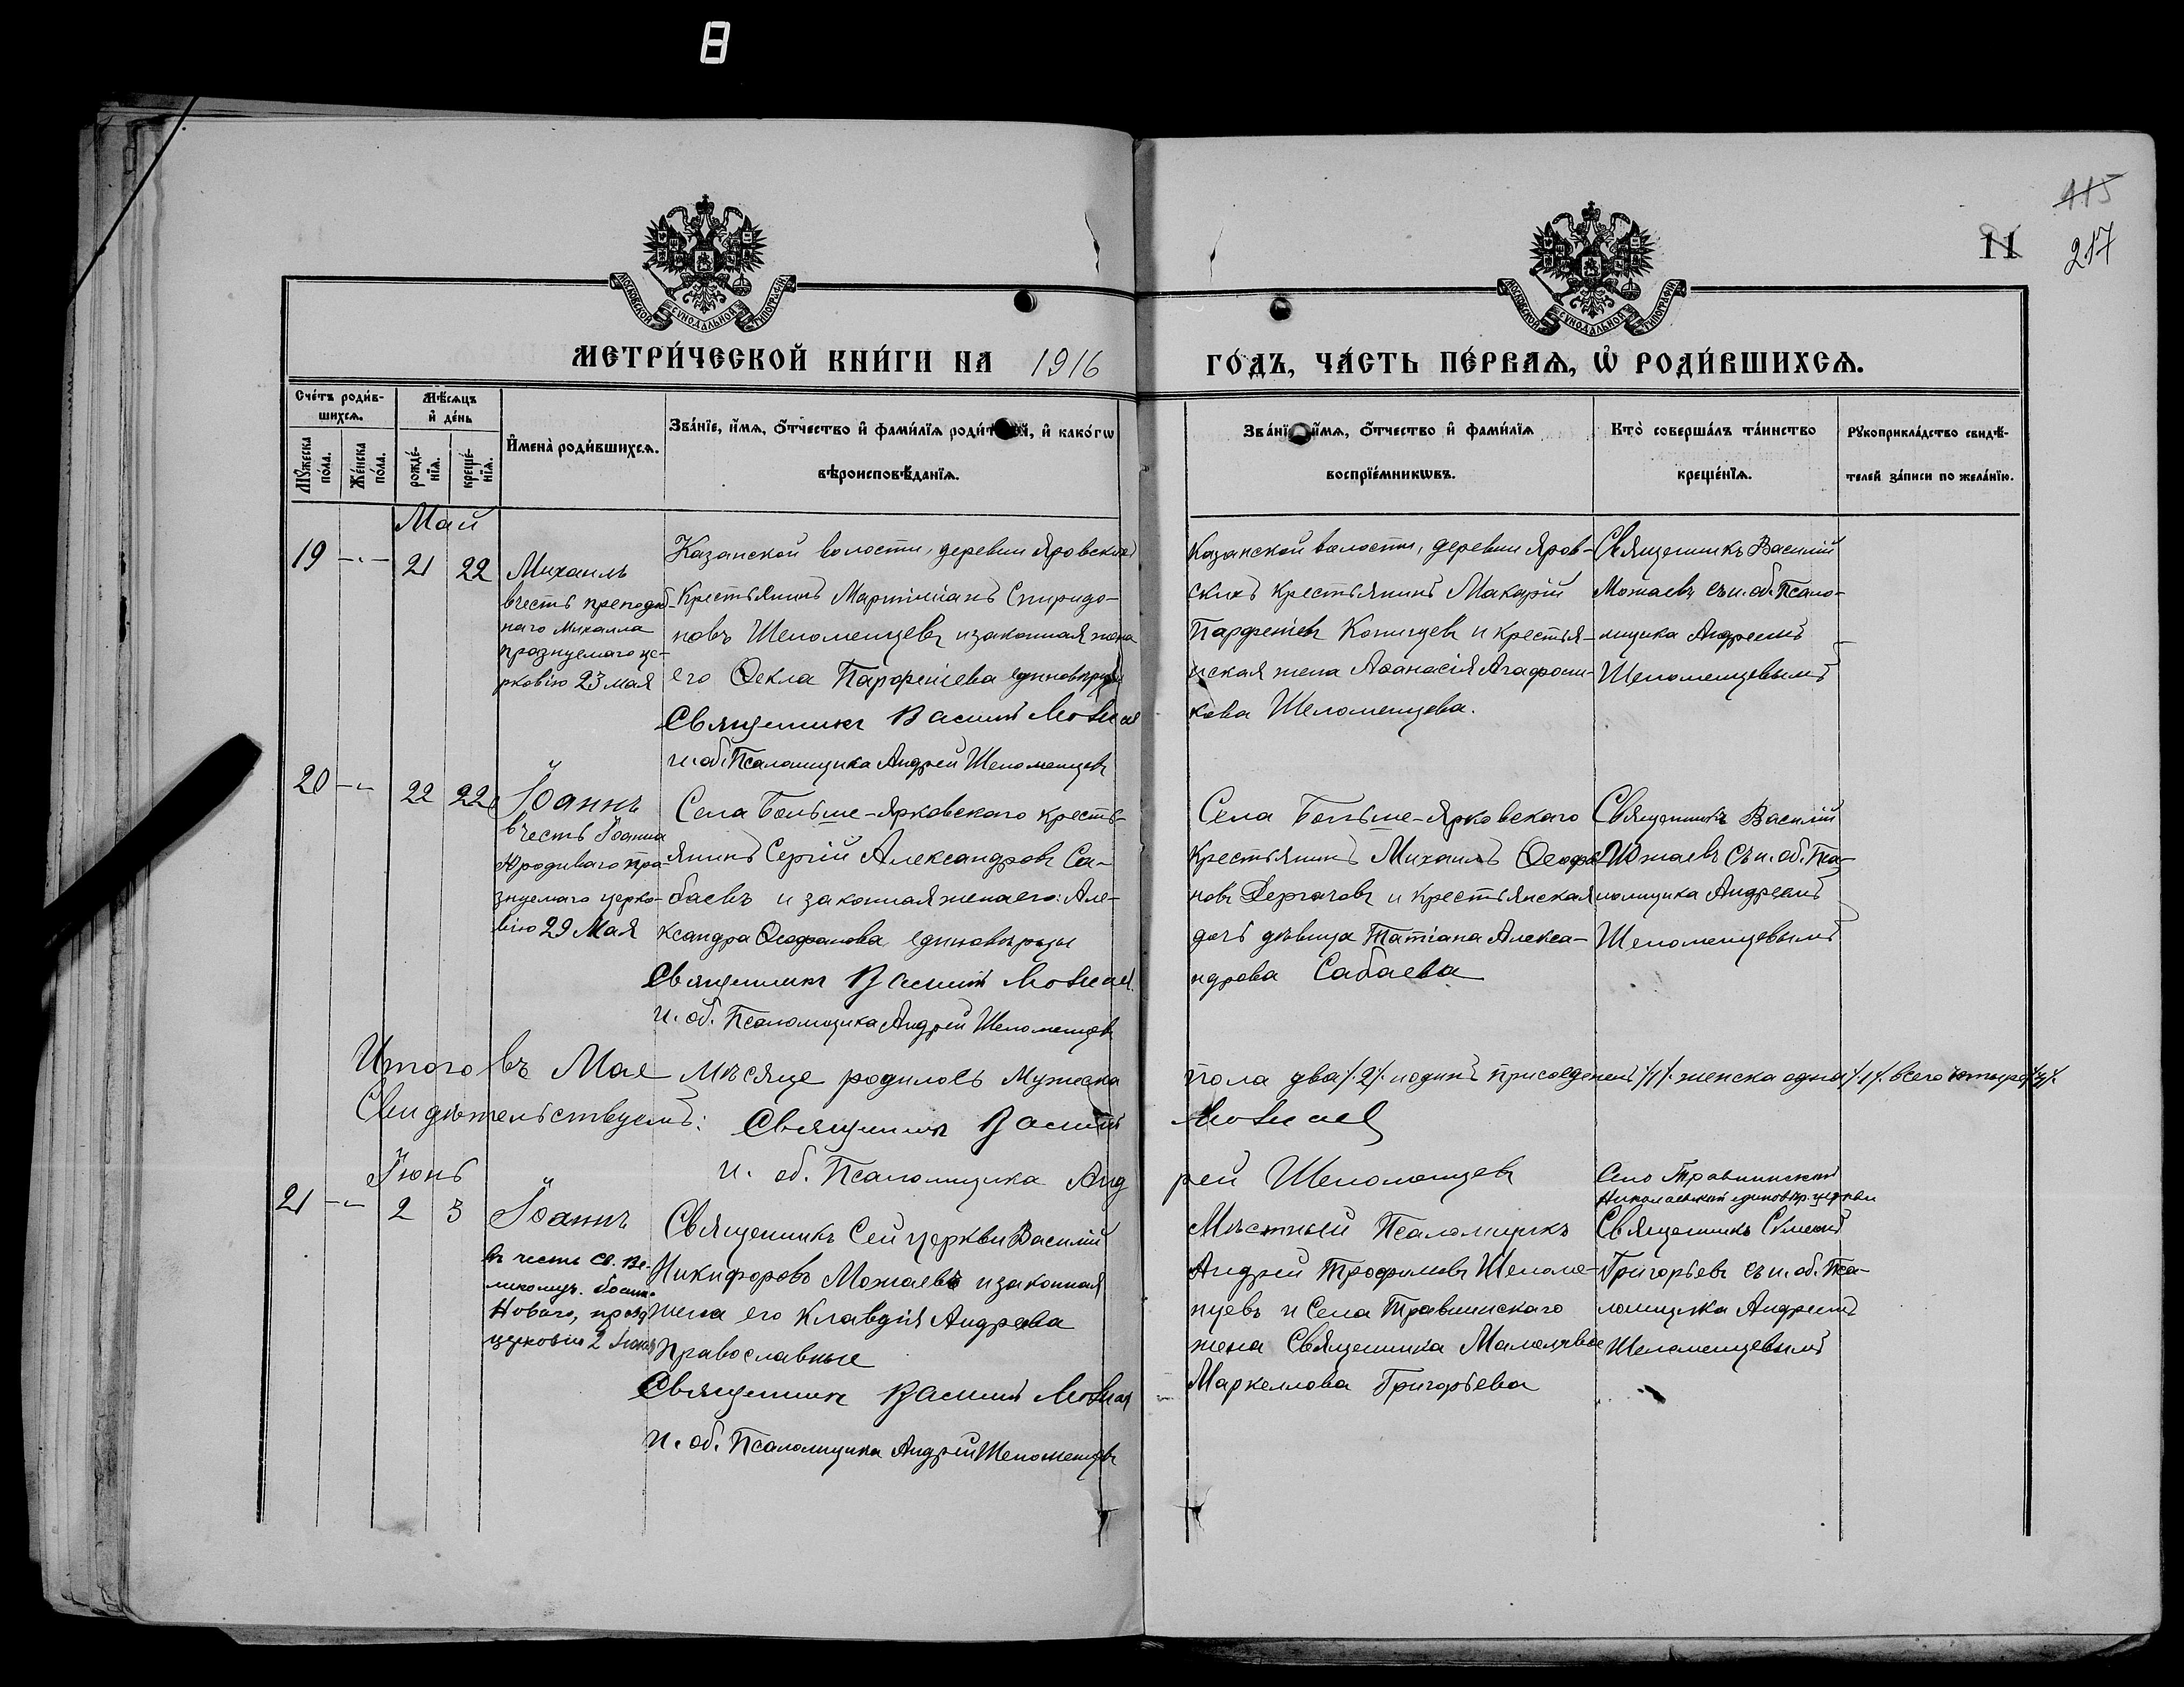 115
11
217
МОСКОВСКОЙ СѴНОДАЛЬНОЙ ТИПОГРАФІИ
МОСКОВСКОЙ СѴНОДАЛЬНОЙ ТИПОГРАФІИ
МЕТРИ́ЧЕСКОЙ КНИ́ГИ НА 1916
ГО́ДЪ, ЧА́СТЬ ПЕ́РВАѦ, Ѡ҆ РОДИ́ВШИХСѦ.
Сче́тъ роди́в-
шихсѧ.
Мѣ́сѧцъ
и҆ де́нь
Мꙋ́жеска
по́ла.
Же́нска
по́ла.
рожде́-
нїѧ.
креще́-
нїѧ.
И҆мена̀ роди́вшихсѧ.
Зва́нїе, и҆́мѧ, ѻ҆́тчество и҆ фами́лїѧ роди́т й, и҆ како́гѡ
вѣроисповѣ́данїѧ.
Зва́нї и҆́мѧ, ѻ҆́тчество и҆ фами́лїѧ
воспрїе́мникѡвъ.
Кто̀ соверша́лъ та́инство
креще́нїѧ.
Рꙋкоприкла́дство свидѣ́-
телей за́писи по жела́нїю.
Май
19 - - - 21 22
Михаилъ
вчесть преподоб-
наго Михаила
празнуемаго це-
рковію 23 мая
Казанской волости, деревни Яровской
Крестьянинъ Мартиніанъ Спиридо-
новъ Шеломенцевъ и законная жена
его Ѳекла Парфеніева единовѣрцы
Священникъ Василій Можаев
и. об. Псаломщика Андрей Шеломенцевъ
Казанской волости, деревни Яров-
скихъ крестьянинъ Макарій
Парфеніевъ Копицевъ и крестья-
нская жена Аѳанасія Агафони-
кова Шеломенцева.
Священникъ Василій
Можаевъ съ и. об. Псало-
мщика Андреемъ
Шеломенцевымъ
20 - - 22 22
Іоаннъ
вчесть Іоанна
Юродиваго пра-
знуемаго церко-
вію 29 Мая
Села Больше-Ярковскаго кресть-
янинъ Сергій Александровъ Са-
баевъ и законная жена его: Але-
ксандра Ѳеофанова единовѣрцы
Священникъ Василій Можаев.
и. об. Псаломщика Андрей Шеломенцевъ
Села Больше-Ярковскаго
Крестьянинъ Михаилъ Ѳеофа-
новъ Дергачовъ и крестьянская
дочь дѣвица Татіана Алекса-
ндрова Сабаева
Священникъ Василій
Можаевъ съ и. об. Пса-
ломщика Андреемъ
Шеломенцевымъ
Итого въ Мае мѣсяце родилось Мужеска пола два /.2/. и одинъ присоеденен /1/. женска одна /.1/. всего четыре /.4/.
Свидѣтельствуемъ: Священникъ Василій Можаев
и. об. Псаломщика Андрей Шеломенцевъ
Іюнь
21 - - 2 3
Іоаннъ
въ честь св. Ве-
ликомуч. Іоанн.
Новаго, празд
церковію 2 Іюня
Священникъ Сей церкви Василій
Никифоровъ Можаевъ и законная
жена его Клавдія Андреева
Православные
Священник Василій Можаев
и. об. Псаломщика Андрей Шеломенцевъ
Мѣстный Псаломщикъ
Андрей Трофимовъ Шеломе-
нцевъ и Села Травнинскаго
жена Священника
Маркеллова Григорьева
Село Травнинской
Николаевской единовѣр. церкви
Священникъ Симеонъ
Григорьевъ съ и. об. Пса-
ломщика Андреемъ
Шеломенцевымъ